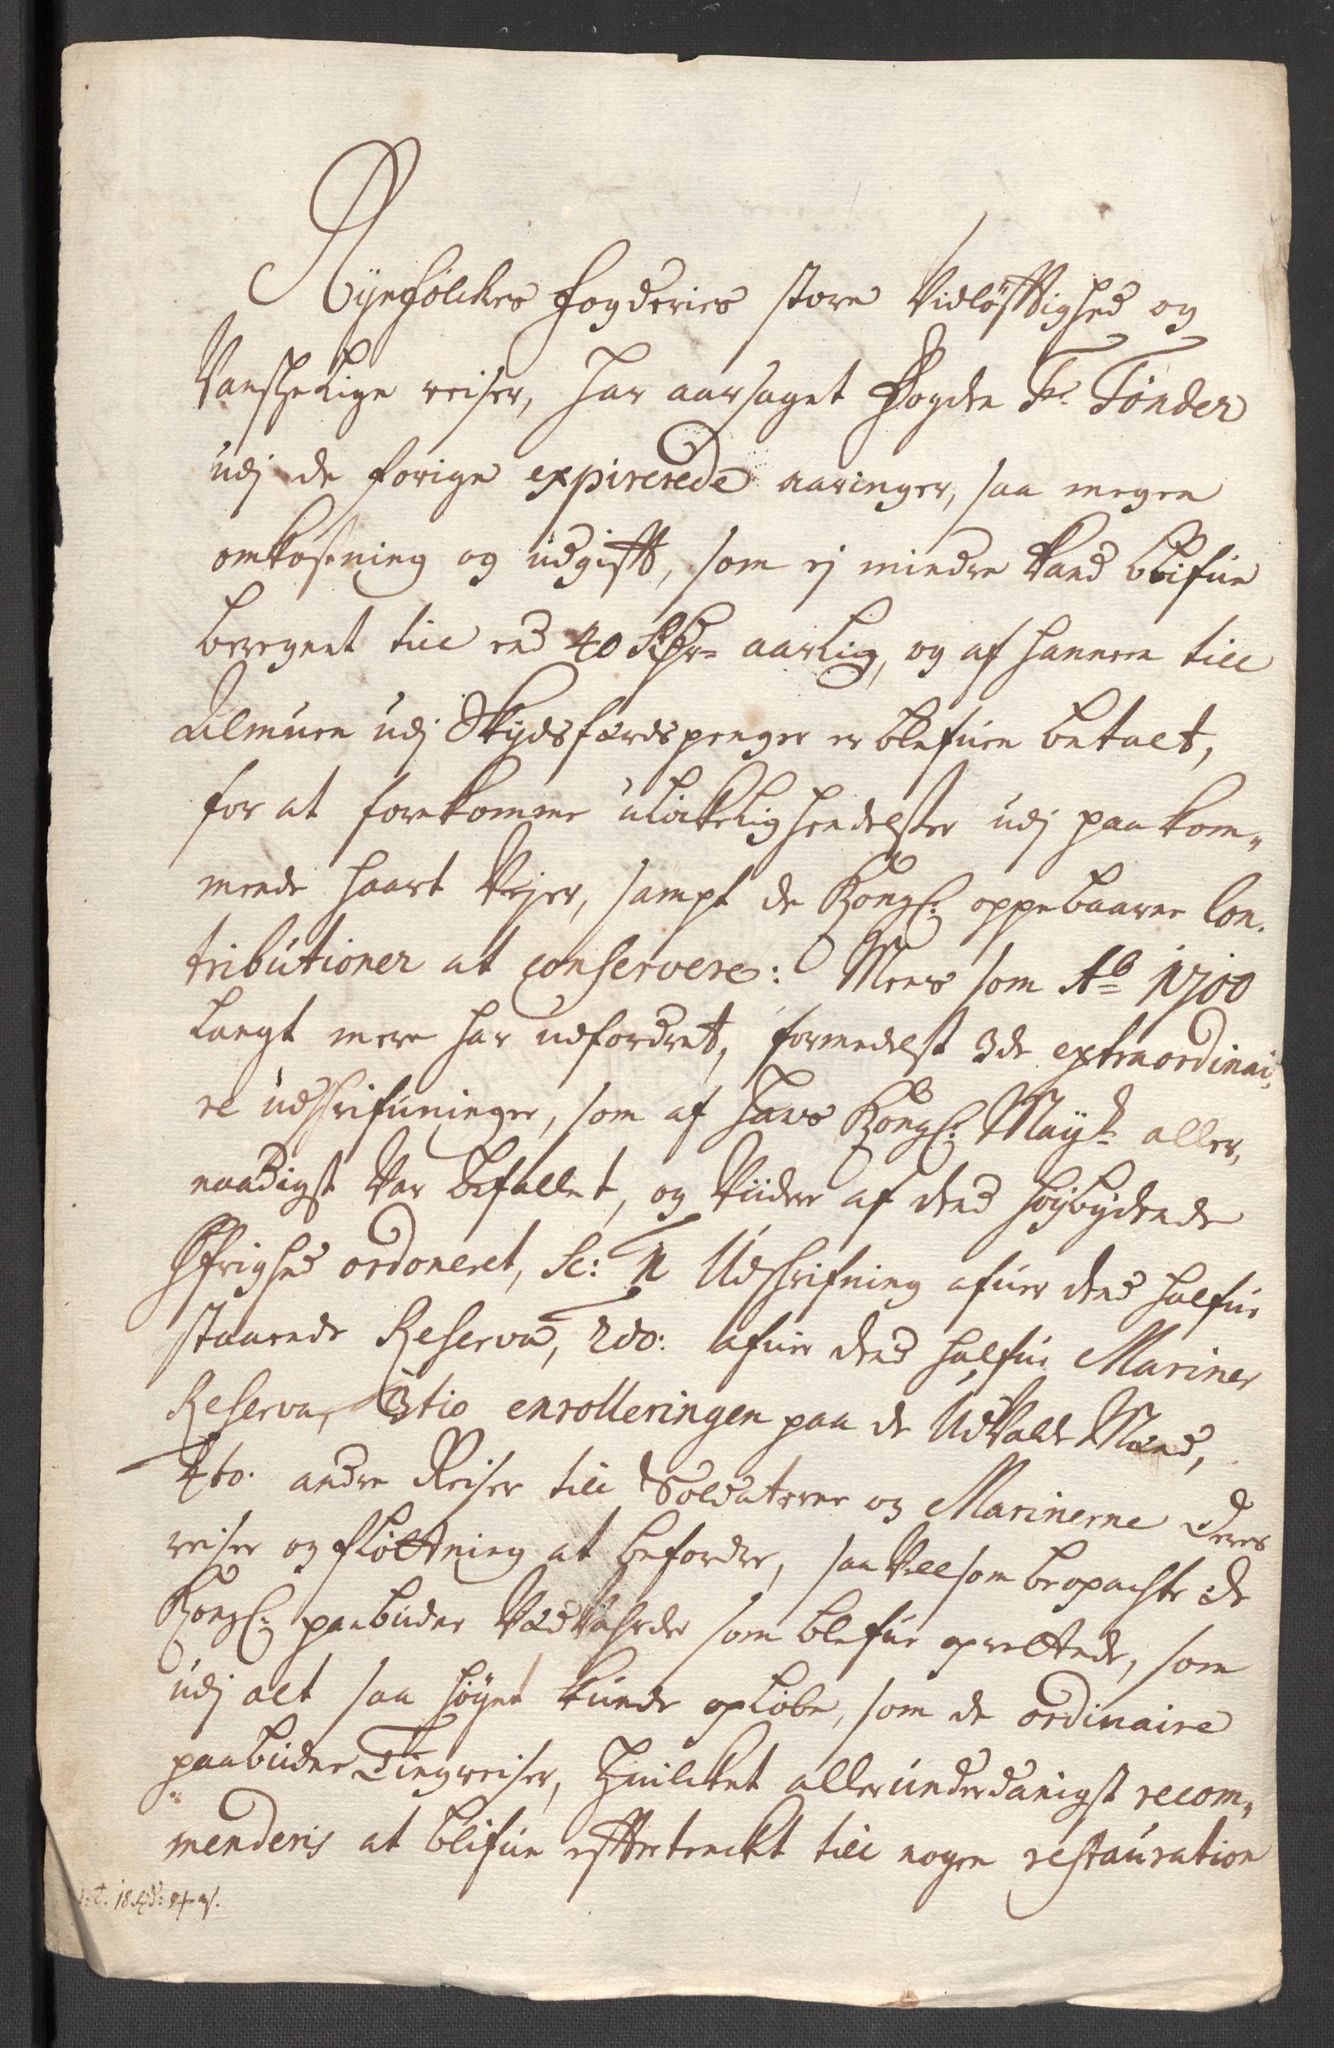 Ryefölckes fogderies store Vidlöfftighed og
Vanschelige reiser, har aarsaget Fogden Fr. Tønder
udj de forige expirerede aaringer, saa megen
omkostning og udgifft, som ej mindre kand blifue
beregnet till end 40 Rdr aarlig, og af hannem till
Allmuen udj Skydsferdspenger er blefuen betalt,
for at forekomme ulökelig hendelser udj paakom„
mende haart Vejer, sampt de Kongl: oppebaarne Con.
tributioner at conservere: Mens som Ao 1700
langt mere har udfordret, formedelst 3de extraordinai„
re udschrifuninger, som af Hans Kongl: Mayt aller„
naadigst var befallet, og Viidere af dend höybydende
Öfrighed ordoneret, Sc: 1 Udschrifning afuer dend halfue
staaende Reserva, 2do: afuer dend halfue Mariner
Reserva, 3tio enrolleringen paa de Udvalde Mænd,
4to. andre Reiser till Soldaterne og Marinerne Deres
reiser og flöttning at befordre, saa Vell som beopachte de
Kongl: paabudne som blefue oprettede, som
udj alt saa höyet kunde oplöbe, som de ordinaire
paabudne Tingreiser, Huilcket allerunderdanigst recom„
menderis at blifue effttertenckt till nogen restauration